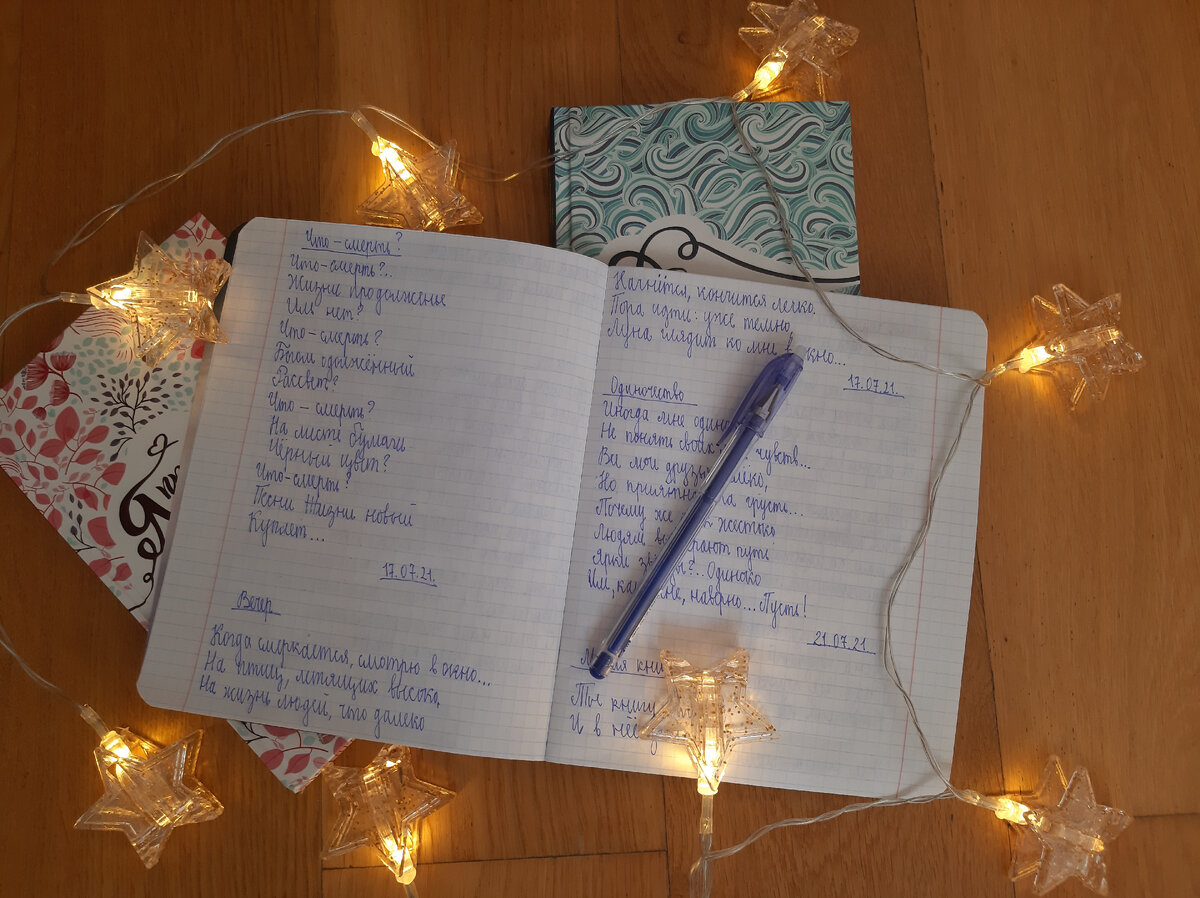 Что – смерть?
Что – смерть?..
Жизни продолженье
Иль нет?
Что – смерть?
Былом
Рассвет?
Что – смерть?
На листе бумаги
Чёрный цвет?
Что – смерть?
Песни Жизни новый
Куплет...
17.07.21.
Вечер
Когда смеркается, смотрю в окно...
На птиц, летящих высоко,
На жизнь людей, что далеко
Начнётся, кончится легко.
Пора идти: уже темно,
Луна глядит ко мне в окно...
17.07.21.
Одиночество
Иногда мне
Не понять своих чувств...
Все мои друзья
Но на грусть...
Почему же жестоко
Людям путь
Ярки Одиноко
Им, наверно... Пусть!
21.07.21.
кни
Тье книгу
И в неё
Я